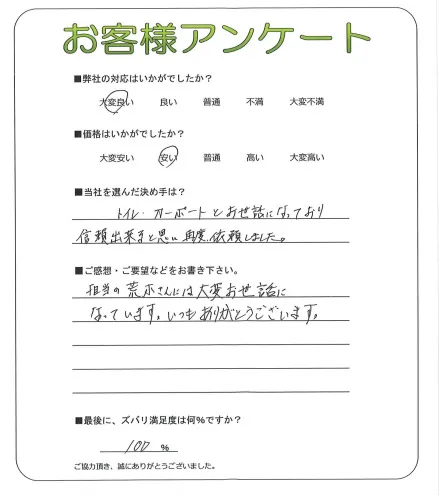 お客様アンケート
■弊社の対応はいかがでしたか?
大変良い 良い 普通 不満 大変不満
■価格はいかがでしたか?
大変安い 安い 普通 高い 大変高い
■当社を選んだ決め手は?
トイレ・カーポートとお世話になっており
信頼出来ると思い再度依頼しました。
■ご感想・ご要望などをお書き下さい。
担当の荒木さんには大変お世話に
なっています。いつもありがとうございます。
■最後に、ズバリ満足度は何%ですか?
100 %
ご協力頂き、誠にありがとうございました。